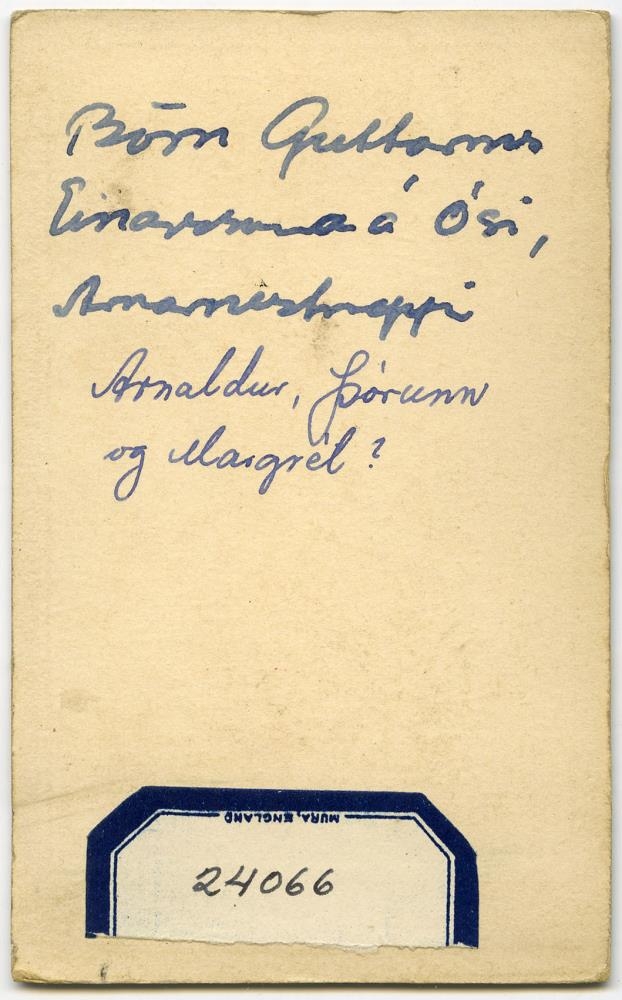 Börn Guttorms
Einarssona á Ósi,
Arnarneshreppi
Arnaldur, Þórunn
og Margrét?
MURA, ENGLAND
24066